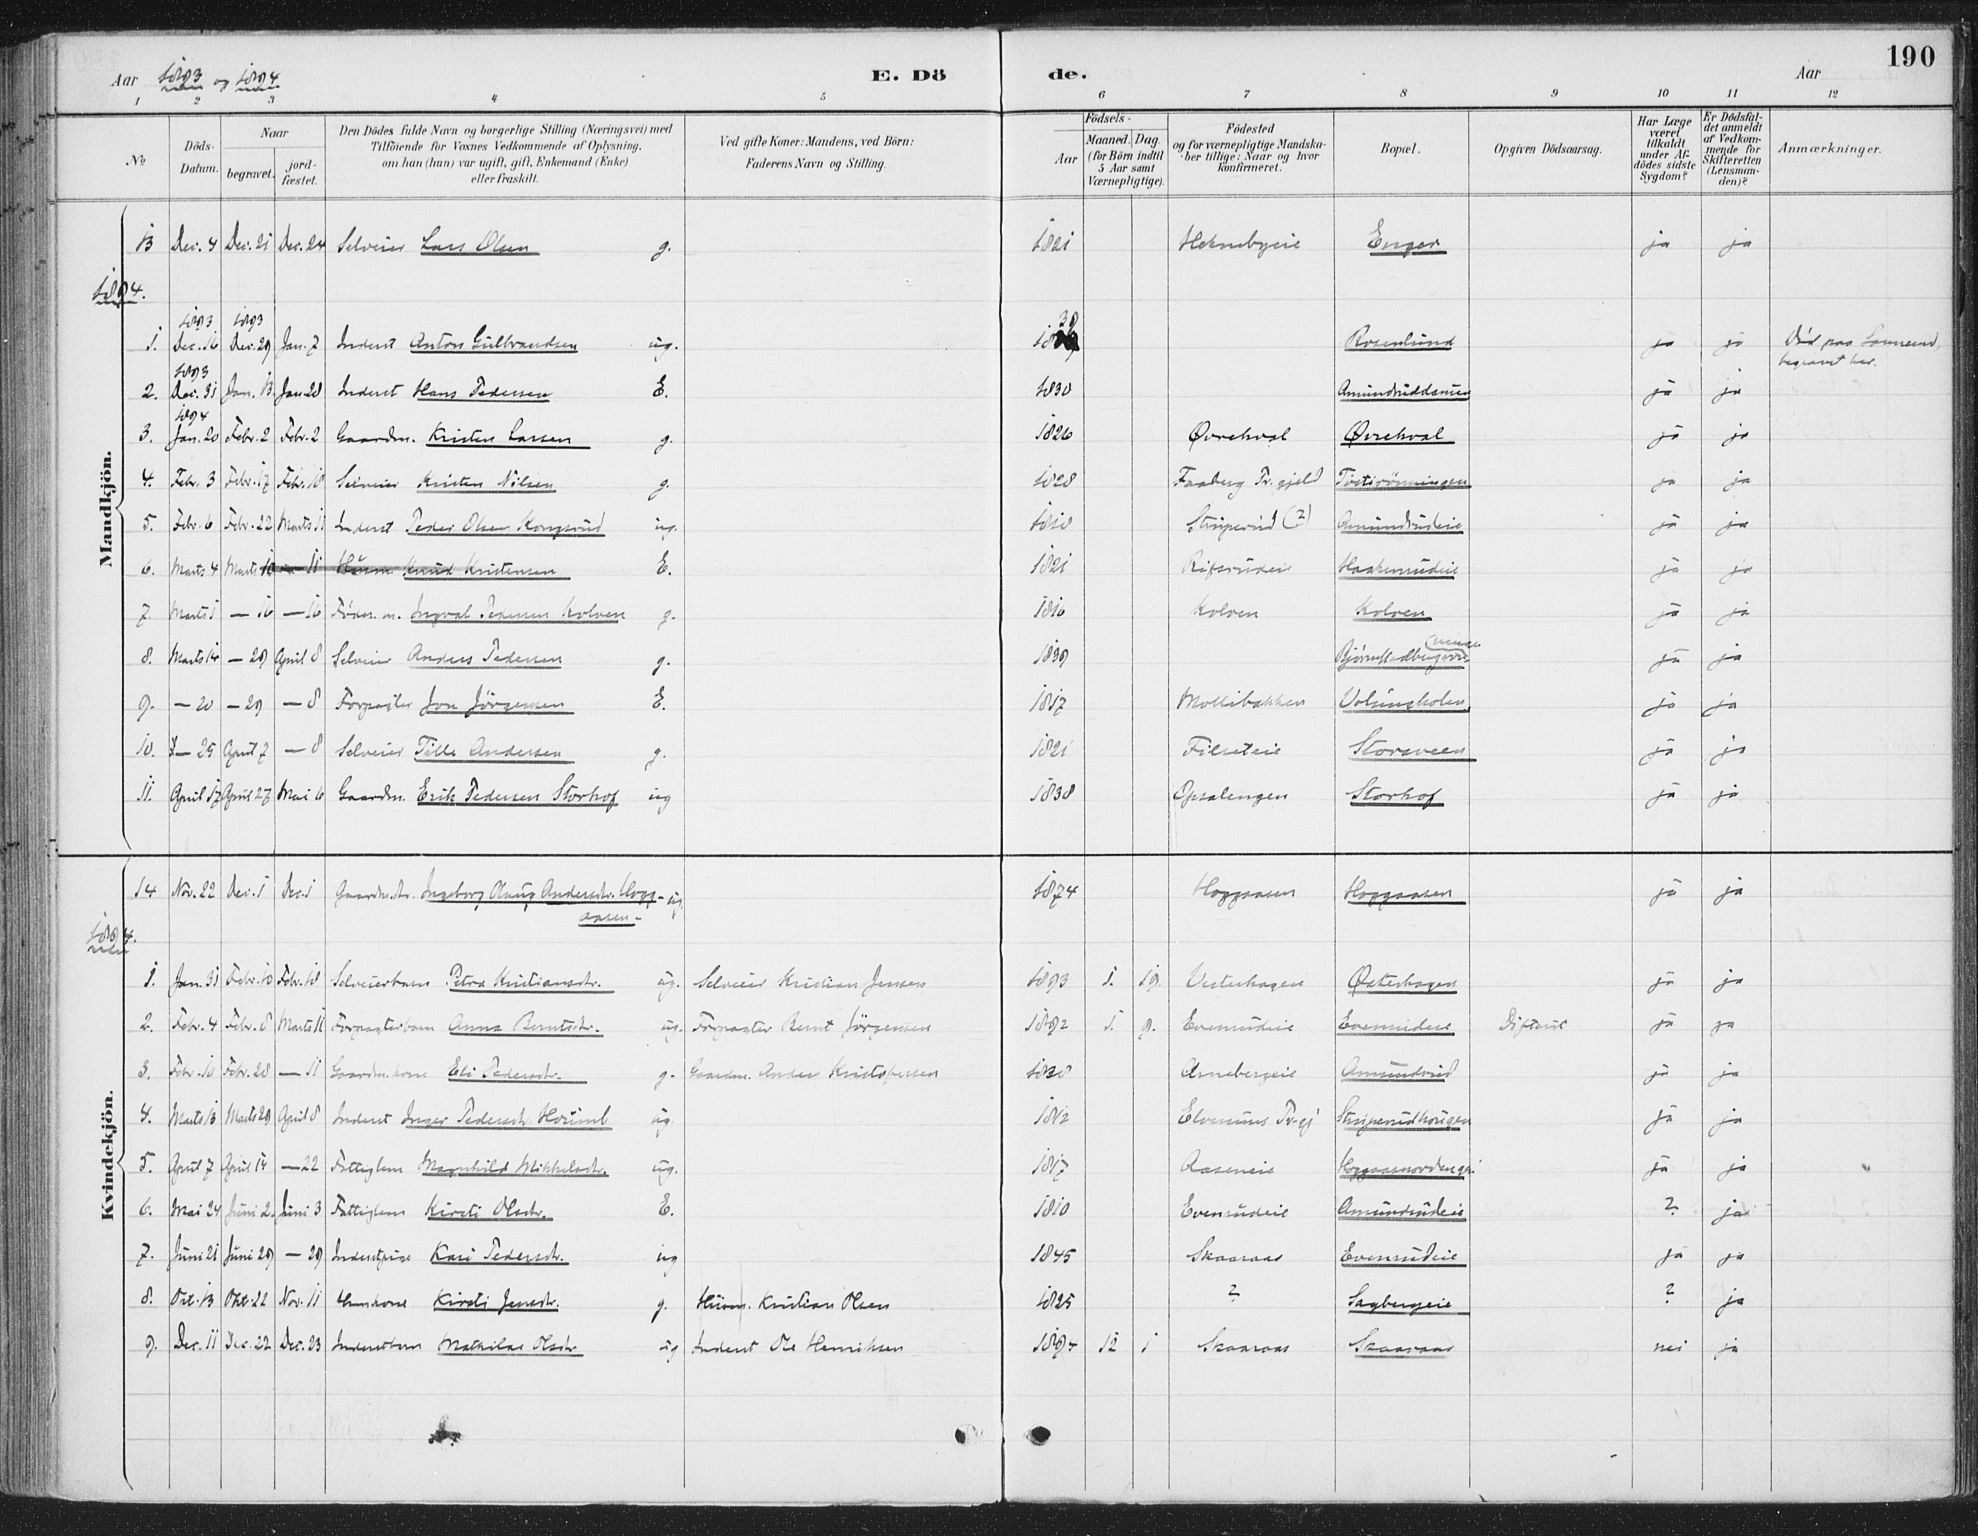 190
Aar 1893 og 1894 E. Dö de. Aar
1 2 3 4 5 6 7 8 9 10 11 12
No
Döds-Datum.
Naar begravet. jordfæstet.
Den Dödes fulde Navn og borgerlige Stilling (Næringsvei) med
Tilföiende for Voxnes Vedkommende af Oplysning,
om han (hun) var ugift, gift, Enkemand (Enke)
eller fraskilt.
Ved gifte Koner: Mandens, ved Börn:
Faderens Navn og Stilling.
Födsels-
Aar Maaned. Dag.
(for Börn indtil
5 Aar samt
Værnepligtige).
Födested
og for værnepligtige Mandska-
ber tillige: Naar og hvor
konfirmeret.
Bopæl.
Opgiven Dödsaarsag.
Har Læge
været
tilkaldt
under Af-
dödes sidste
Sygdom?
Er Dödsfal-
det anmeldt
af Vedkom-
mende for
Skifteretten
(Lensman-
den)?
Anmærkninger.
Mandkjön.
13 Dec. 4 Dec. 21 Dec. 24 Selveier Lars Olsen g. 1821 Enger ja ja
1894.
1893 1893
1. Dec. 16 Dec. 29 Jan. 7 Inderst Anton Gulbrandsen ug. 39 Rosenlund ja ja Död paa
begravet her.
1893
2. Dec. 31 Jan. 13 Jan 28 Inderst Hans Pedersen E. 1830 ja ja
1894
3. Jan. 20 Febr. 2 Febr. 2 Gaardm. Kristen Larsen g. 1826 Øvrehval Øvrehval ja ja
4. Febr. 3 Febr. 17 Febr. 18 Selveier Kristen Nilsen g. 1828 Faaberg Pr.gjeld ja ja
5. Febr. 6 Febr. 22 Marts 11 Inderst Peder Olsen Kongsrud ug. 1818 Striperud (?) Amundrudeie ja ja
6. Marts 4 Marts — 11 Knud Kristensen E. 1821 Haakenrudeie ja ja
7. Marts — 16 — 16 Föder. m. Ingval Pedersen Kolven g. 1816 Kolven Kolven ja ja
8. Marts 14 — 29 April 8 Selveier Anders Pedersen g. 1839 ja ja
9. — 20 — 29 — 8 Forpagter Jon Jörgensen E. 1817 Mollibakken ja ja
10. — 25 April 7 — 8 Selveier Tille Andersen g. 1821 Filseteie Storsveen ja ja
11. April 17 April 27 Mai 6 Gaardm. Erik Pedersen Storhof ug 1838 Opsalengen Storhof ja ja
Kvindekjön.
14 Nov. 22 Dec. 1 Dec. 1 Ingeborg Olaug Andersdtr. Hogg- ug. 1874 Hoggaasen Hoggaasen ja ja
aasen-
1894.
1. Jan. 31 Febr. 10 Febr. 18 Selveierbarn Petra Kristiansdtr. ug. Selveier Kristian Jensen 1893 1. 19. Vesterhagen Østerhagen ja ja
2. Febr. 4 Febr. 8 Marts 11 Forpagterbarn Anna Berntsdtr. ug. Forpagter Bernt Jörgensen 1892 1. 9. Evenrudeie Evenrudeie Difterit ja ja
3. Febr. 10 Febr. 28 — 11 Gaardm.kone Eli Pedersdtr. g. Gaardm. Anders Kristofersen Arnebergeie Amundrud ja ja
4. Marts 13 Marts 29 April 8 Inderst Inger Pedersdtr. ug. 1812 Elverums Pr.gj Striperudhougen ja ja
5. April 7 April 14 — 22 Fattiglem Magnhild Mikkelsdtr. ug. 1817 Aaseneie ja ja
6. Mai 24 Juni 2. Juni 3 Fattiglem Kirsti Olsdtr. E. 1810 Evenrudeie Amundrudeie ? ja
7. Juni 21 Juni 29 — 29 Inderstpige Kari Pedersdtr. ug 1845 Skaaraas Evenrudeie ja ja
8. Oct. 13 Okt. 22 Nov. 11 Kirsti Jensdtr. g. Husm. Kristian Olsen 1825 ? Sagbergeie ? ja
9. Dec. 11 Dec. 22 Dec. 23 Inderstbarn Mathilde Olsdtr. ug Inderst Ole Henriksen 1894 12 1 Skaaraas Skaaraas nei ja